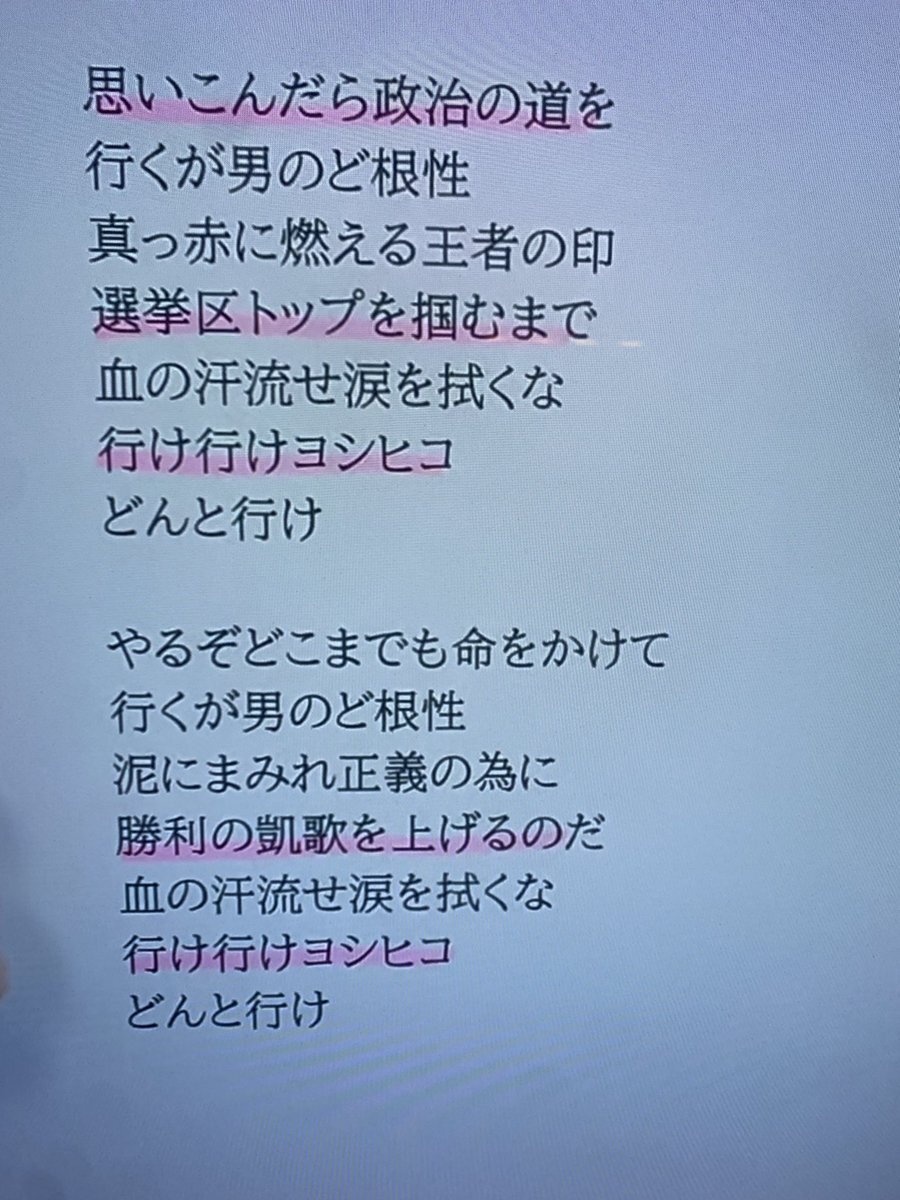 思いこんだら政治の道を
行くが男のど根性
真っ赤に燃える王者の印
選挙区トップを掴むまで
血の汗流せ涙を拭くな
行け行けヨシヒコ
どんと行け
やるぞどこまでも命をかけて
行くが男のど根性
泥にまみれ正義の為に
勝利の凱歌を上げるのだ
血の汗流せ涙を拭くな
行け行けヨシヒコ
どんと行け